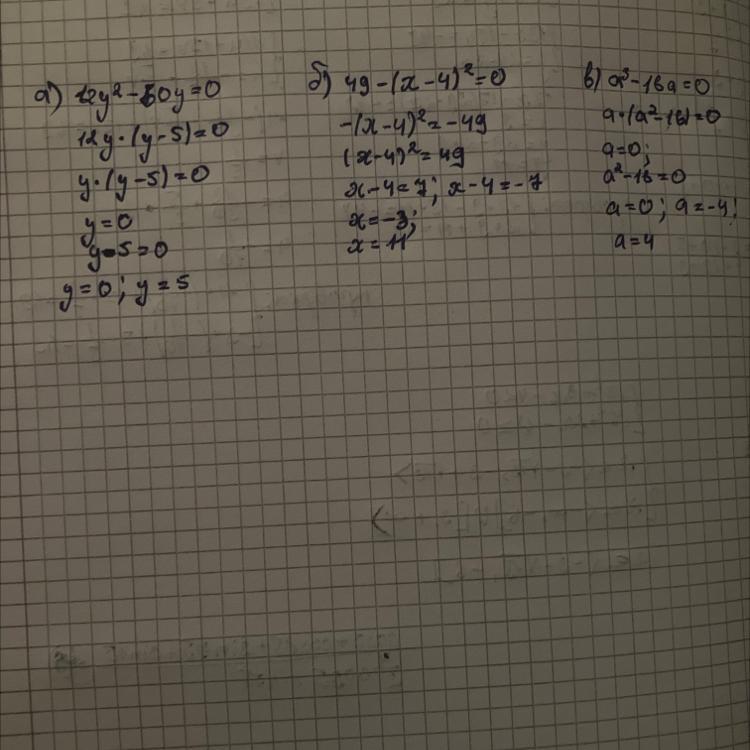 а) 12y²-60y=0
12y·(y-5)=0
y·(y-5)=0
y=0
y-5=0
y=0; y=5
б) 49-(x-4)²=0
-(x-4)²=-49
(x-4)²=49
x-4=7; x-4=-7
x=-3;
x=11
в) a³-16a=0
a·(a²-16)=0
a=0;
a²-16=0
a=0; a=-4;
a=4